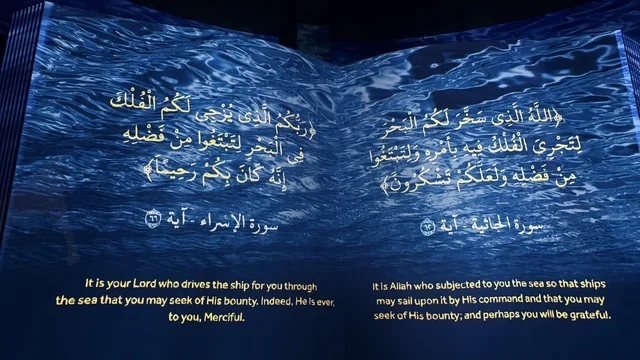 ﴿اللَّهُ الَّذِي سَخَّرَ لَكُمُ الْبَحْرَ
لِتَجْرِيَ الْفُلْكُ فِيهِ بِأَمْرِهِ وَلِتَبْتَغُوا
مِنْ فَضْلِهِ وَلَعَلَّكُمْ تَشْكُرُونَ﴾
سورة الجاثية - آية ١٢
It is Allah who subjected to you the sea so that ships
may sail upon it by His command and that you may
seek of His bounty; and perhaps you will be grateful.
﴿رَبُّكُمُ الَّذِي يُزْجِي لَكُمُ الْفُلْكَ
فِي الْبَحْرِ لِتَبْتَغُوا مِنْ فَضْلِهِ
إِنَّهُ كَانَ بِكُمْ رَحِيمًا﴾
سورة الإسراء - آية ٦٦
It is your Lord who drives the ship for you through
the sea that you may seek of His bounty. Indeed, He is ever,
to you, Merciful.